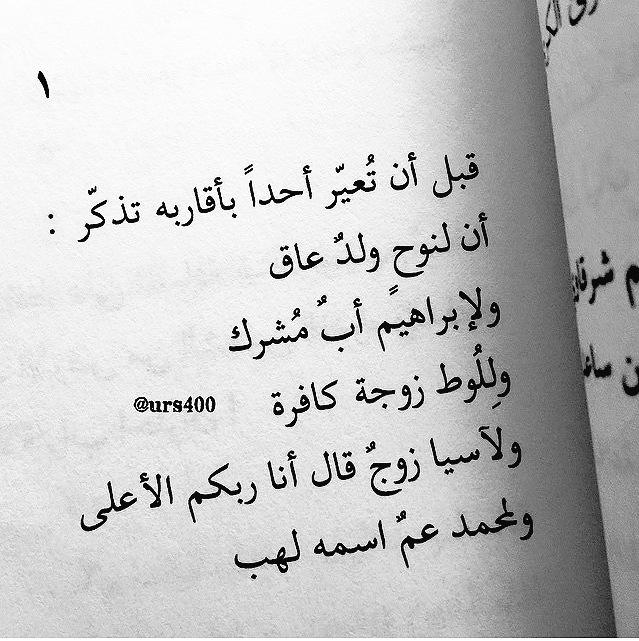 ١
قبل أن تُعيّر أحداً بأقاربه تذكّر :
أن لنوح ولدٌ عاق
ولإبراهيمً أبٌ مُشرك
ولِلُوط زوجة كافرة
@urs400
ولآسيا زوجٌ قال أنا ربكم الأعلى
ولمحمد عمٌ اسمه لهب